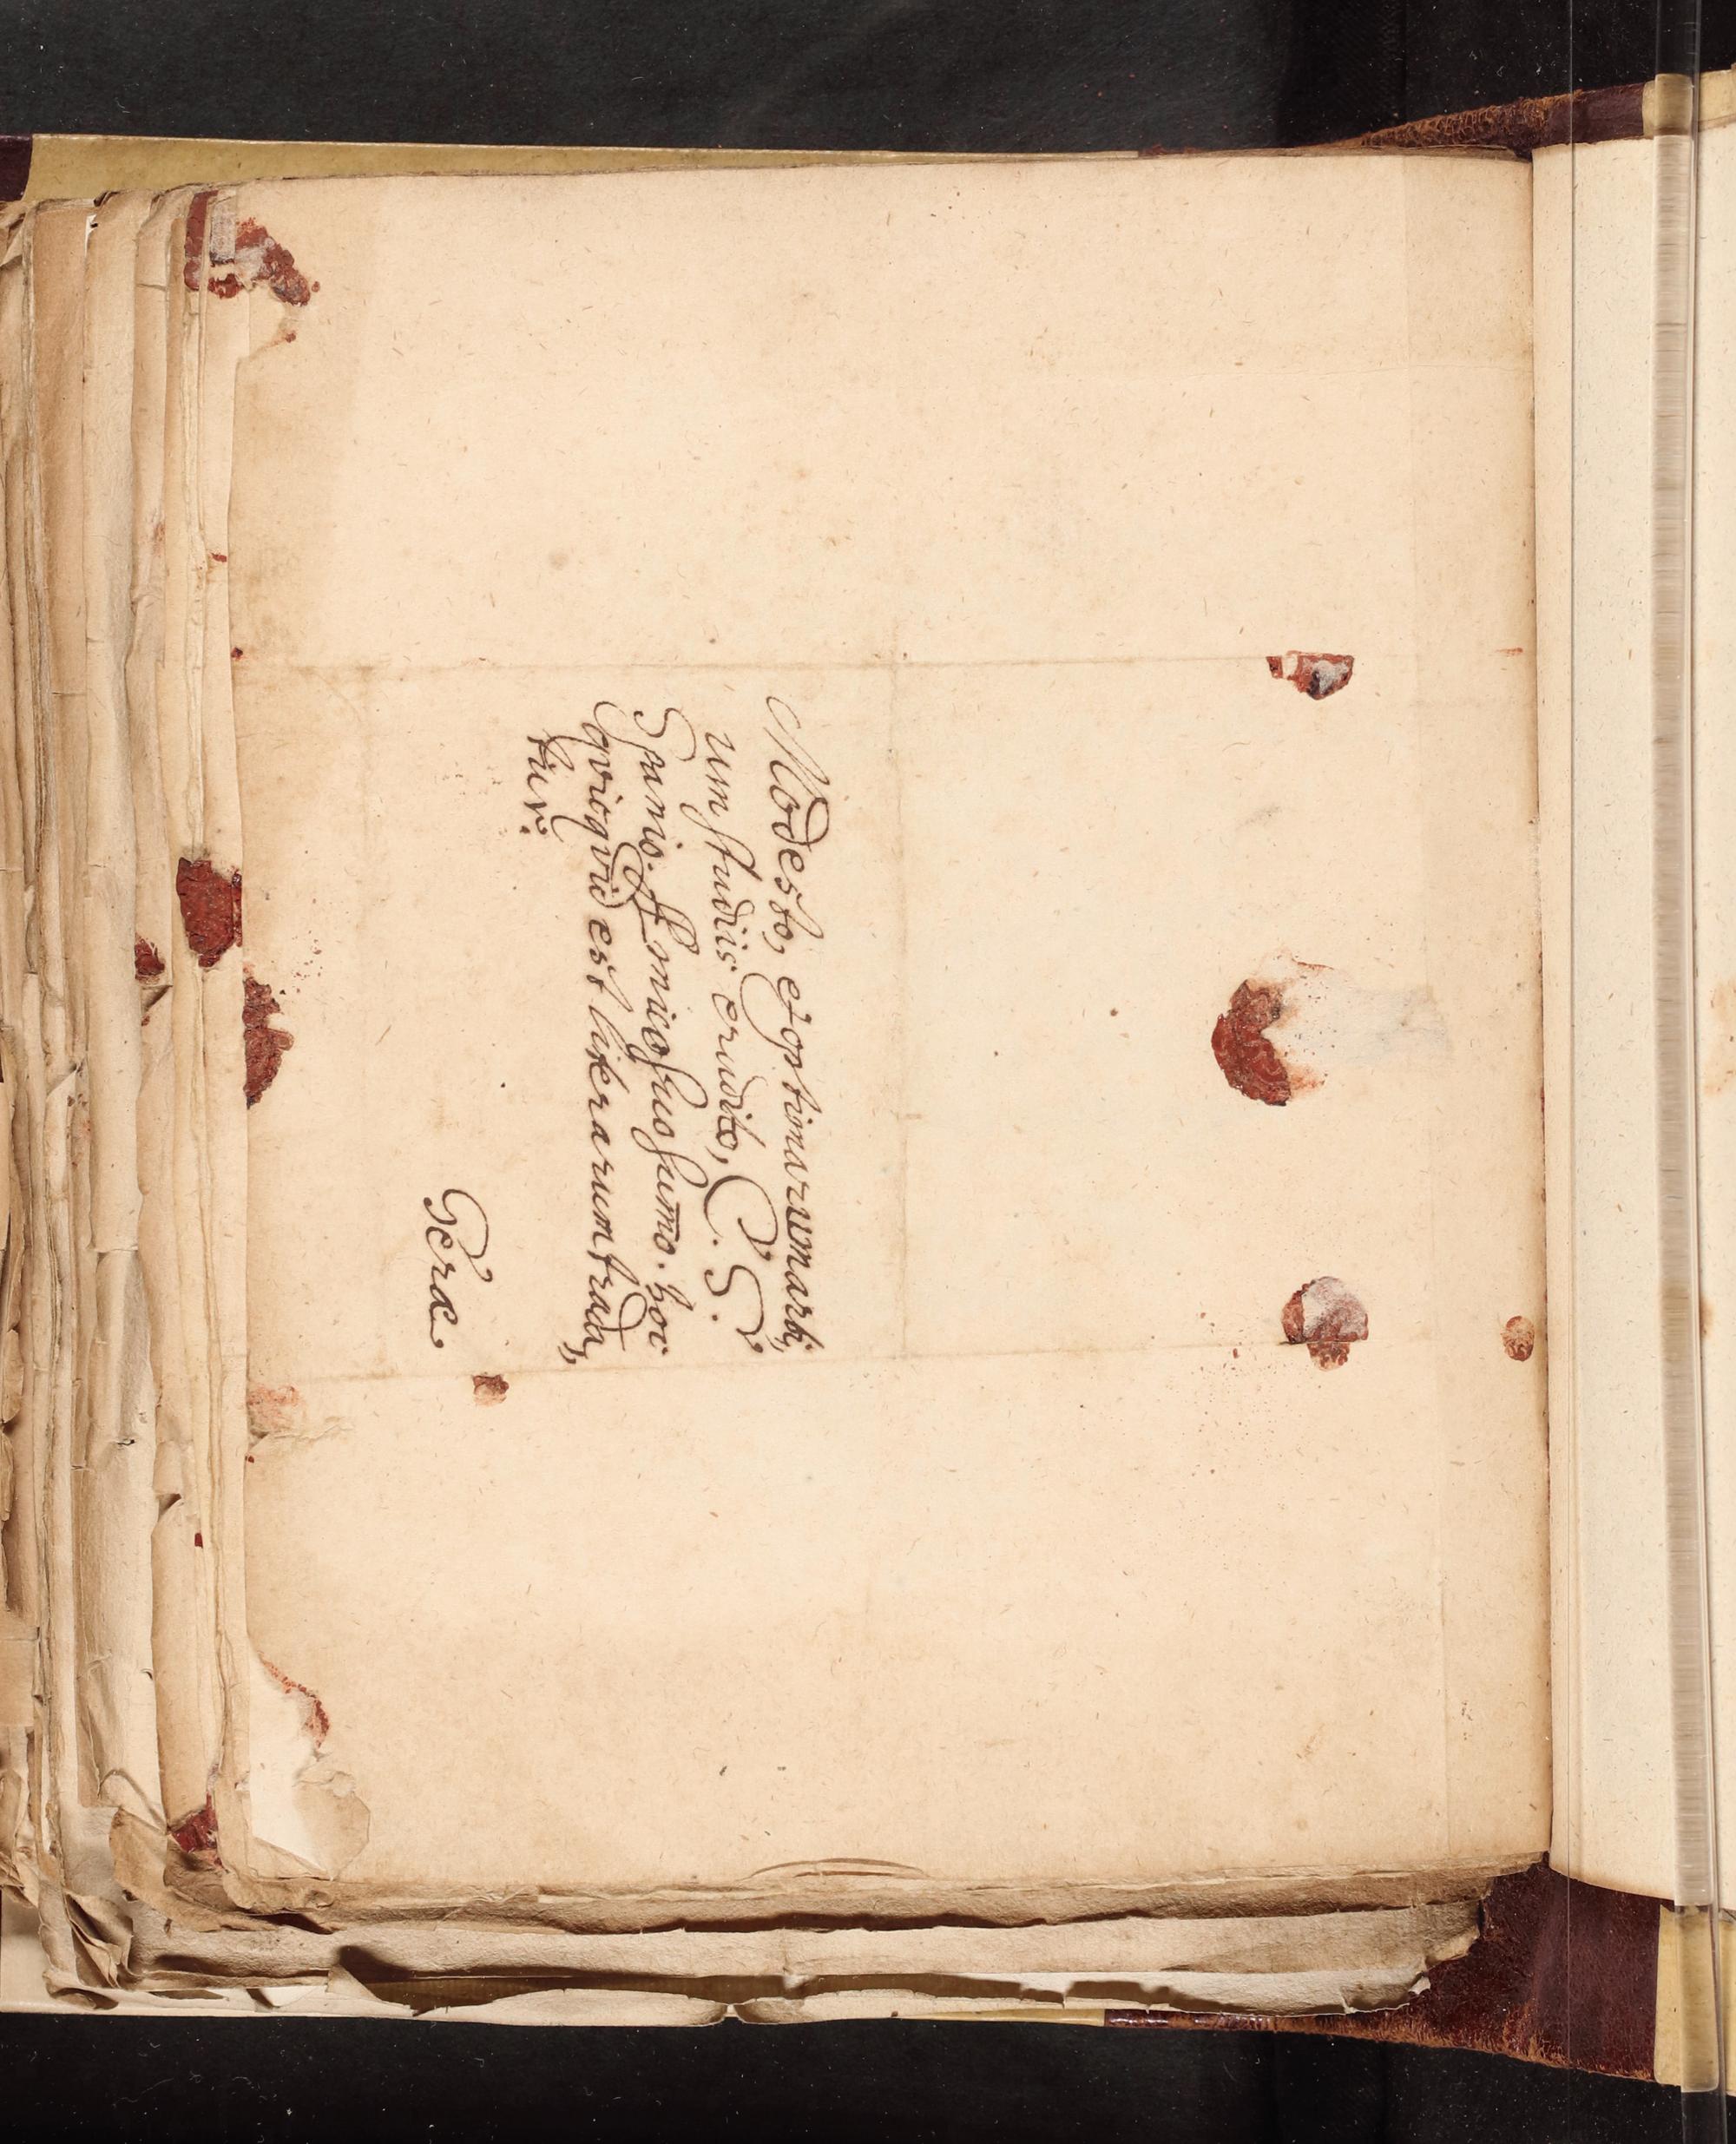 Modesto, et optimarum arti,
um studiis erudito, C. S.
Spanio. Amico suo summo. hoc
qvicqvid est literarum trada,
tur.
Gerae.